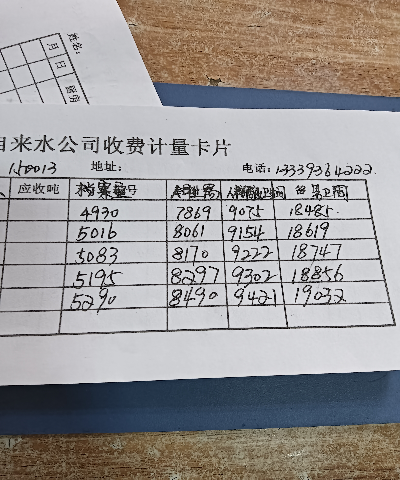 姓名:
月 日
自来水公司收费计量卡片
150013 地址: 电话: 13339364222.
应收吨 档案室 号
4930 7869 9075 18485.
5016 8061 9154 18619
5083 8170 9222 18747
5195 8297 9302 18856
5290 8490 9421 19032